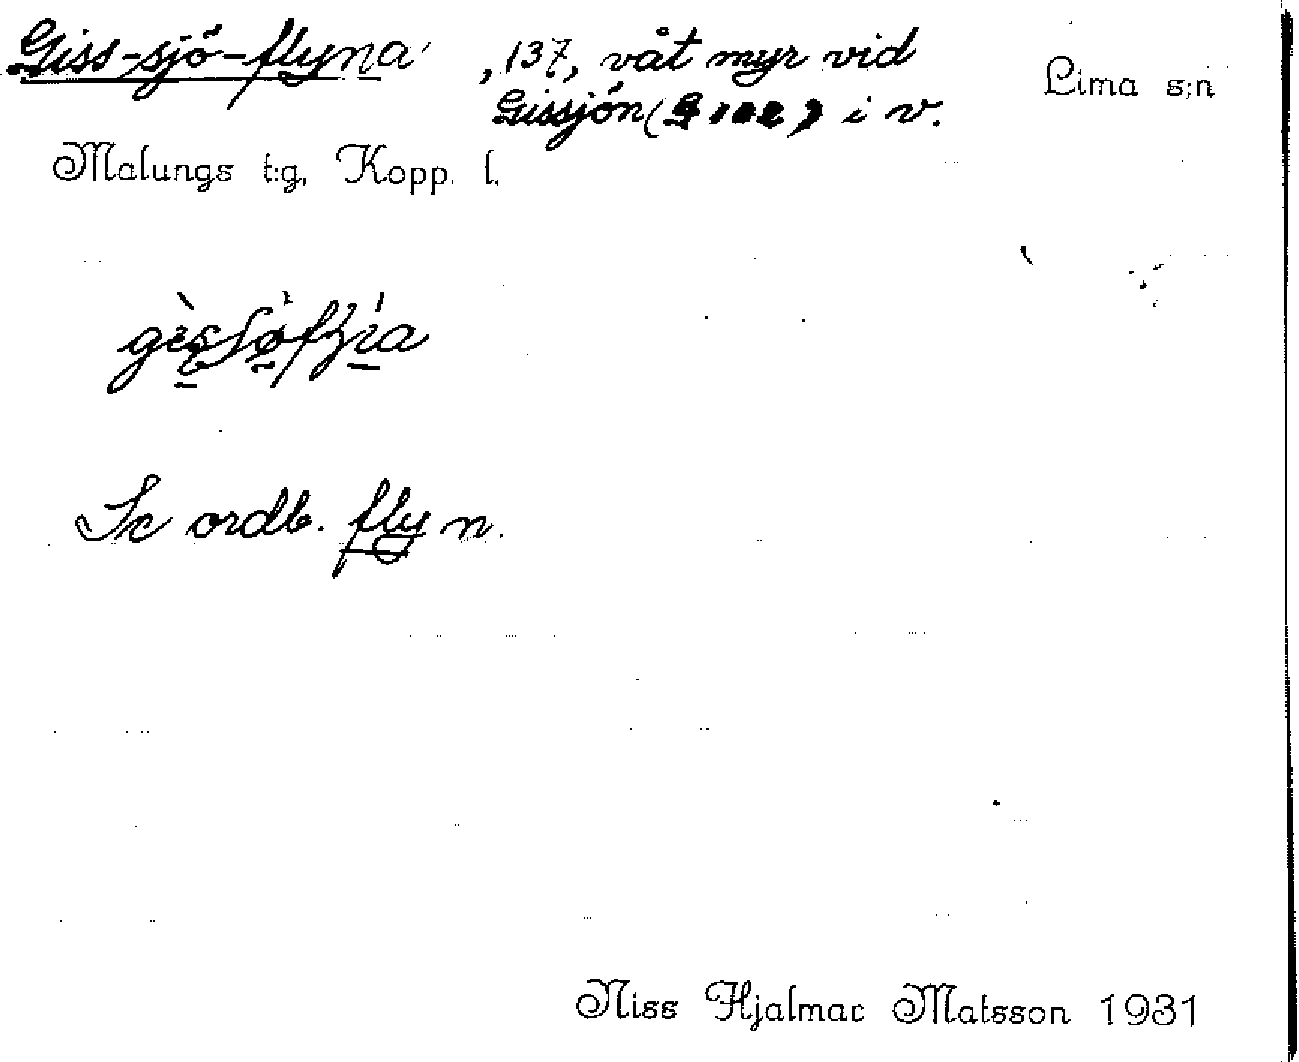 Giss-sjö-flyna , 137, våt myr vid Lima s:n
Gissjön (G 102) i v.
Malungs t:g, Kopp. l.
Se ordb. fly n.
Niss Hjalmar Matsson 1931